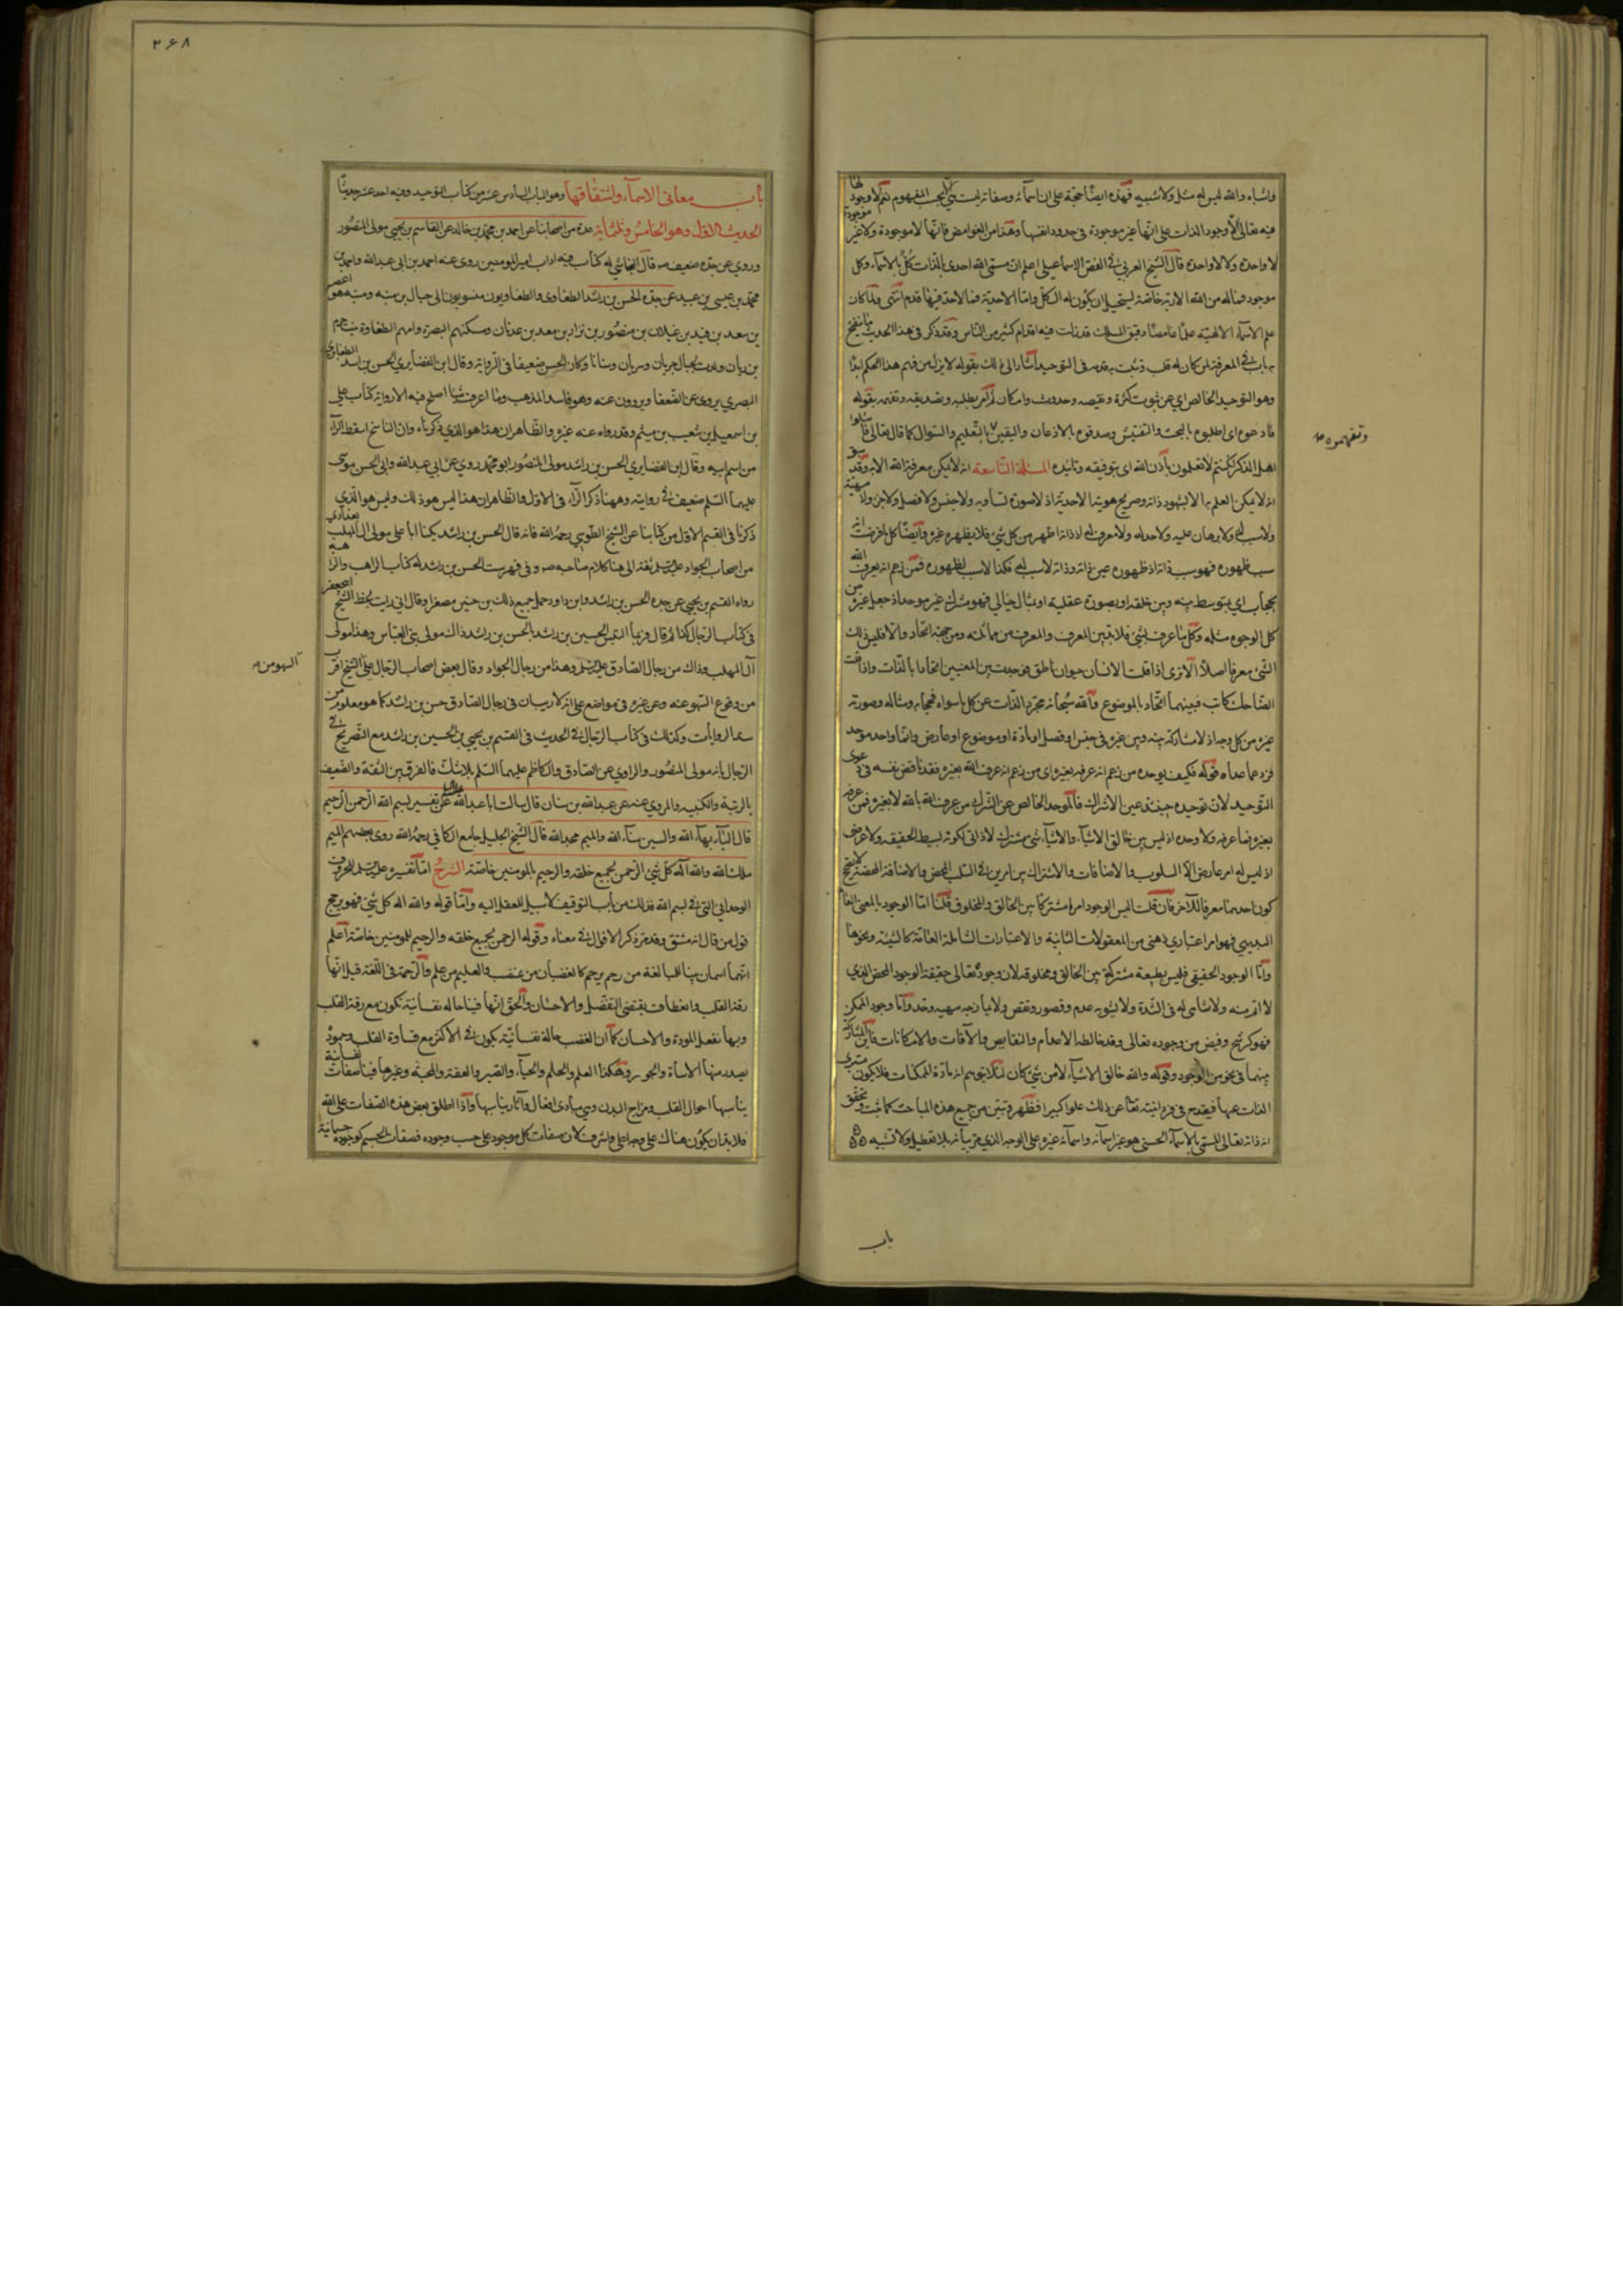 واشباه والله ليس له مثل ولا شبيه فهذه ايضا حجة على ان اسمائه وصفاته ليست بحسب المفهوم نعم لا وجود لها
فيه تعالى الا وجود الذات على انها غير موجودة في حدود انفسها وهذا من الغوامض فانها لا موجودة ولا غير موجودة
لا واحدة ولا لا واحدة قال الشيخ العربي في الفص الاسماعيلي اعلم ان مسمى الله احدي بالذات كل بالاسماء وكل
موجود فما له من الله الا ربه خاصة يستحيل ان يكون له الكل واما الاحدية فما لاحد فيها قدم انتهى ولما كان
علم الاسماء الالهية علما غامضا دقيق المسلك قد زلت فيه اقدام كثير من الناس وقد ذكر في هذا الحديث ما ينفتح
به باب في المعرفة لمن كان له قلب وثبت به قدمه في التوحيد اشار الى ذلك بقوله لا يزل من فهم هذا الحكم ابدا
وهو التوحيد الخالص اي عن ثبوت كثرة ونقيصه وحدوث وامكان ثم امر بطلبه وتصديقه وتفهمه بقوله
فادعوه اي اطلبوه بالبحث والتفتيش وصدقوه بالاذعان واليقين بالتعليم والسوال كما قال تعالى فاسئلوا
وتفهموه
اهل الذكر ان كنتم لا تعلمون باذن الله اي بتوفيقه وتائيده المسئلة التاسعة انه لا يمكن معرفة الله الا به وقد سبق
انه لا يمكن العلم به الا بشهود ذاته وصريح هويته الاحدية اذ لا صورة تساويه ولا جنس ولا فصل ولا جزء ولا مهية
ولا سبب له ولا برهان عليه ولا حد له ولا معرف له اذ ذاته اظهر من كل شيء فلا يظهره غيره وايضا كل ما فرضت انه
سبب ظهوره فهو سبب ذاته اذ ظهوره عين ذاته وذاته لا سبب له فكذا لا سبب لظهوره فمن زعم انه يعرف الله
بحجاب اي بتوسط بينه وبين خلقه او بصورة عقلية او مثال خيالي فهو مشرك غير موحد اذ جعل غيره من
كل الوجوه مثله وكل ما عرف بشيء فلا بد بين المعرف والمعرف من مماثلة ومن جهة اتحاد والا فليس ذلك
الشيء معرفا اصلا الا ترى اذا قلت الانسان حيوان ناطق فقد حيث بين المعنيين اتحادا بالذات واذا قلت
الضاحك كاتب فبينهما اتحاد بالموضوع والله سبحانه مجرد الذات عن كل ما سواه فحجابه ومثاله وصورته
غيره من كل وجه اذ لا مشاركة بينه وبين غيره في جنس او فصل او مادة او موضوع او عارض وانما واحد موحد
فرد عما عداه قوله فكيف يوحده من زعم انه عرفه بغيره اي من زعم انه عرف الله بغيره فقد ناقض نفسه في دعوى
التوحيد لان توحيده حينئذ عين الاشراك فالموحد الخالص عن الشرك من عرف الله بالله لا بغيره فمن عرفه
بغيره فما عرفه ولا وحده اذ ليس بين خالق الاشياء والاشياء شيء مشترك لا ذاتي لكونه بسيط الحقيقه ولا عرضي
اذ ليس له امر عارض الا السلوب والاضافات والاشتراك بين امرين في السلب المحض والاضافة المحضة لا يفتح
كون احدهما معرفا للآخر فان قلت اليس الوجود امرا مشتركا بين الخالق والمخلوق قلنا اما الوجود بالمعنى العام
البديهي فهو امر اعتباري ذهني من المعقولات الثانية والاعتبارات الشاملة العامة كالشيئية ونحوها
واما الوجود الحقيقي فليس طبيعة مشتركة بين الخالق ومخلوقه لان وجوده تعالى حقيقة الوجود المحض الذي
لا اتم منه ولا شاى له في الشدة ولا يشوبه عدم وقصور ونقص ولا يمازجه مهيه وحد واما وجود الممكن
فهو كرشح وفيض من وجوده تعالى وقد خالطه الاعدام والنقايص والآفات والامكانات فاين المشاركة
بينهما في نحو من الوجود وقوله والله خالق الاشياء لا من شيء كان لئلا يتوهم انه مادة الممكنات فلا يكون مبرى
الذات عنها فيقدح في فردانيته تعالى عن ذلك علوا كبيرا فظهر وتبين من جميع هذه المباحث كما ثبت وتحقق
ان ذاته تعالى المسمى بالاسماء الحسنى هو غير اسمائه واسمائه غيره على الوجه الذي مر بيانه بلا تعطيل ولا تشبيه
باب
٢۶٨
باب معاني الاسماء واشتقاقها وهو الباب السادس عشر من كتاب التوحيد وفيه احد عشر حديثا
الحديث الاول وهو الخامس وثلثمائة عدة من اصحابنا عن احمد بن محمد بن خالد عن القاسم بن يحيى مولى المنصور
وروى عن جده ضعيف صه قال النجاشي له كتاب فيه اداب امير المومنين روى عنه احمد بن ابي عبد الله واحمد بن
محمد بن عيسى بن عبيد عن جده الحسن بن راشد الطفاوي والطفاويون منسوبون الى حبال بن منبه ومنبه هو اعصر
بن سعد بن قيد بن غيلان بن منصور بن نزار بن معد بن عدنان ومسكنهم البصرة وامهم الطفاوة بنت جرم
بن ربان ولدت لحبال جريان وسريان وسنانا وكان الحسن ضعيفا في الرواية وقال ابن الغضايري الحسن بن اسد الطفاوي
البصري يروي عن الضعفا ويروون عنه وهو فاسد المذهب وما اعرف شيئا اصلح فيه الا رواية كتاب علي
بن اسمعيل بن شعيب بن ميثم وقد رواه عنه غيره والظاهر ان هذا هو الذي ذكرناه وان الناسخ اسقط الراء
من اسم ابيه وقال ابن الغضايري الحسن بن راشد مولى المنصور ابو محمد روى عن ابي عبد الله وابي الحسن موسى
عليهما السلم ضعيف في روايته وههنا ذكر الراء في الاول والظاهر ان هذا ليس هو ذلك وليس هو الذي
ذكرنا في القسم الاول من كتابنا عن الشيخ الطوسي رحمه الله فانه قال الحسن بن راشد يكنا ابا علي مولى ال المهلب بغدادي
من اصحاب الجواد عليه السلم ثقة الى هنا كلام صاحب صه وفي فهرست الحسن بن راشد له كتاب الراهب والراهبة
رواه القسم بن يحيى عن جده الحسن بن راشد وابن داود حمل جميع ذلك بن حنين مصغرا وقال اني رايت بخط الشيخ ابي جعفر
في كتاب الرجال كذا ثم قال وربما التبس الحسين بن راشد بالحسن بن راشد ذاك مولى بني العباس وهذا مولى
آل المهلب وذاك من رجال الصادق عليه السلم وهذا من رجال الجواد وقال بعض اصحاب الرجال على الشيخ اقرب
السهو من
من وقوع السهو عنه وعن غيره في مواضع على انه لا ريب ان في رجال الصادق حسن بن راشد كما هو معلوم من
سند الروايات وكذلك في كتاب الرجال في الحديث في القسم بن يحيى بن الحسين بن راشد مع التصريح في
الرجال بانه مولى المنصور والراوي عن الصادق والكاظم عليهما السلم بلا شك فالفرق بين الثقة والضعيف
بالرتبة والكنية والمروي عنه عن عبد الله بن سنان قال سالت ابا عبد الله عليه السلم عن تفسير بسم الله الرحمن الرحيم
قال الباء بهاء الله والسين سناء الله والميم مجد الله قال الشيخ الجليل جامع الكافي رحمه الله روى بعضهم الميم
ملك الله والله اله كل شيء الرحمن بجميع خلقه والرحيم بالمومنين خاصة الشرح اما تفسيره عليه السلم للحروف
الوحداني التي في بسم الله فذلك من باب التوقيف لا سبيل للعقل اليه واما قوله والله اله كل شيء فهو يرجح
قول من قال انه مشتق وقد مر ذكر الاقوال في معناه وقوله الرحمن بجميع خلقه والرحيم للمومنين خاصة اعلم
انهما اسمان بنيا للمبالغة من رحم يرحم كالغضبان من غضب والعليم من علم والرحمة في اللغة قيل انها
رقة القلب وانعطاف يقتضي التفضل والاحسان والحق انها فينا حاله نفسانية تكون مع رقة القلب
وبها تفعل المودة والاحسان كما ان الغضب حالة نفسانية يكون في الاكثر مع قساوة القلب وجموده
يصدر منها الاساءة والجور وهكذا العلم والحلم والحياء والصبر والعفة والمحبة وغيرها فينا صفات نفسانية
يناسبها احوال القلب ومزاج البدن وهي مبادي افعال وآثار يناسبها واذا اطلق بعض هذه الصفات على الله
فلا بد ان يكون هناك على وجه اعلى واشرف لان صفات كل موجود على حسب وجوده فصفات الجسم كوجوده جسمانية